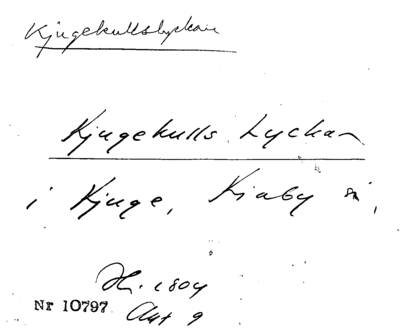 Kjugekullslyckan
Kjugekulls Lyckan
i Kjuge, Kiaby sn,
1804
Nr 10797 Akt 9